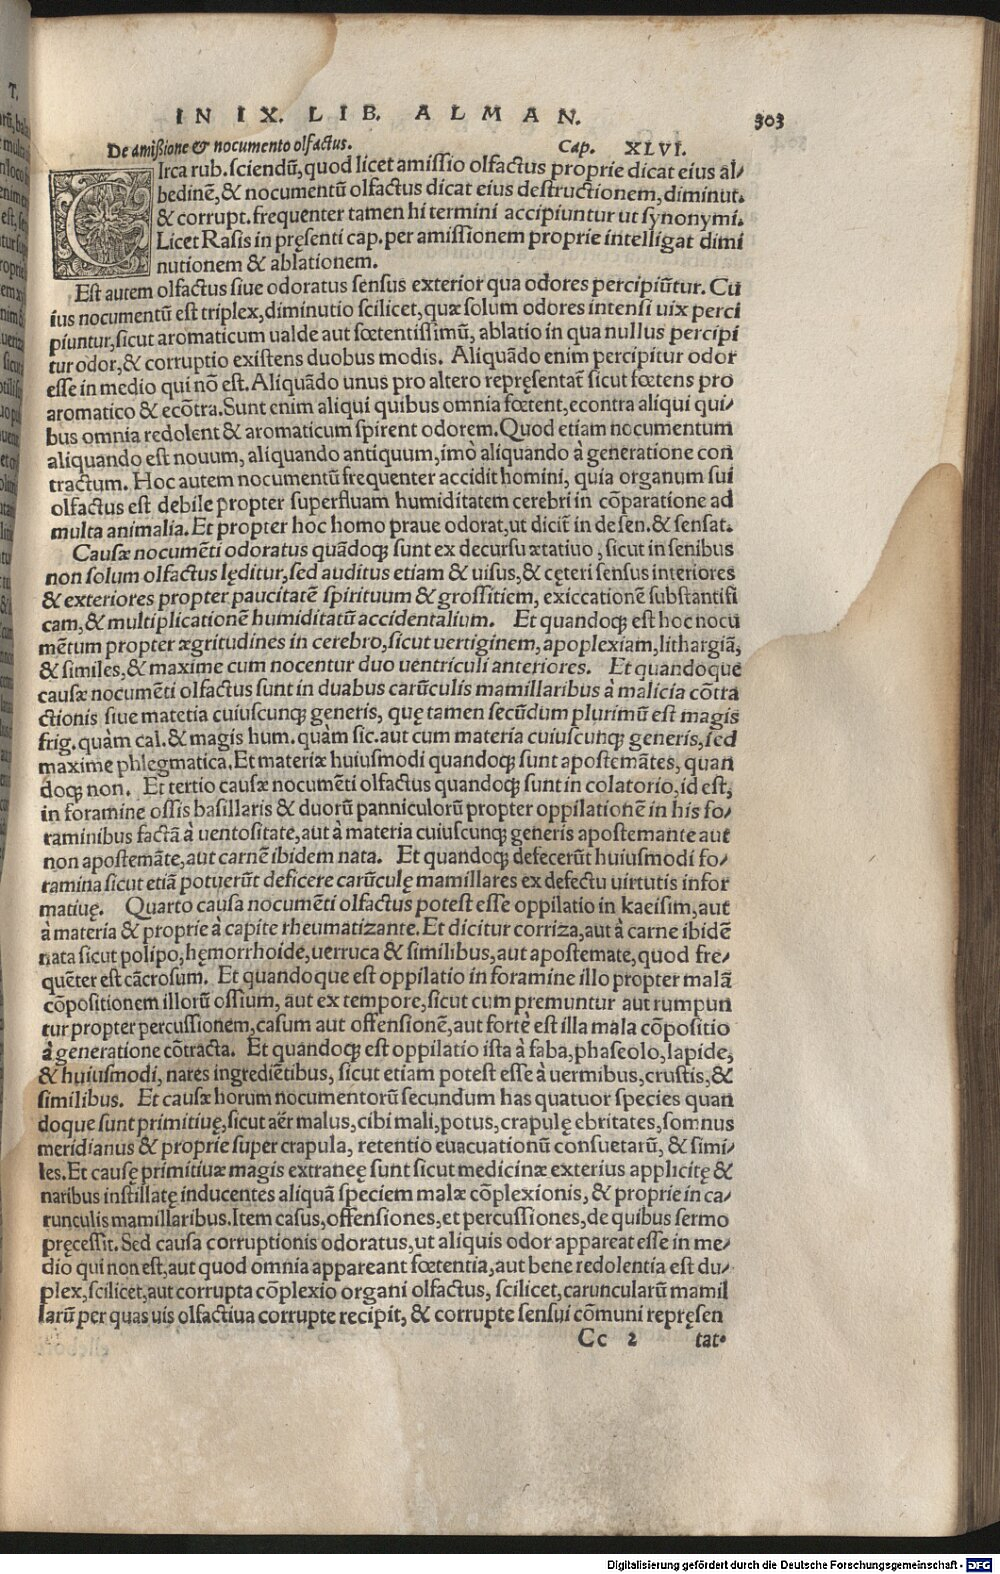 IN IX. LIB. ALMAN. 303
De amißione & nocumento olfactus. Cap. XLVI.
CIrca rub. sciendũ, quod licet amissio olfactus proprie dicat eius al/
bedinẽ, & nocumentũ olfactus dicat eius destructionem, diminut.
& corrupt. frequenter tamen hi termini accipiuntur ut synonymi.
Licet Rasis in pręsenti cap. per amissionem proprie intelligat dimi
nutionem & ablationem.
Est autem olfactus siue odoratus sensus exterior qua odores percipiũtur. Cu
ius nocumentũ est triplex, diminutio scilicet, quæ solum odores intensi uix perci
piuntur, sicut aromaticum ualde aut fœtentissimũ, ablatio in qua nullus percipi
tur odor, & corruptio existens duobus modis. Aliquãdo enim percipitur odor
esse in medio qui nõ est. Aliquãdo unus pro altero repręsentat̃ sicut fœtens pro
aromatico & ecõtra. Sunt enim aliqui quibus omnia fœtent, econtra aliqui qui/
bus omnia redolent & aromaticum spirent odorem. Quod etiam nocumentum
aliquando est nouum, aliquando antiquum, imò aliquando à generatione con
tractum. Hoc autem nocumentũ frequenter accidit homini, quia organum sui
olfactus est debile propter superfluam humiditatem cerebri in cõparatione ad
multa animalia. Et propter hoc homo praue odorat, ut dicit̃ in de sen. & sensat.
Causæ nocumẽti odoratus quãdoqꝫ sunt ex decursu ætatiuo, sicut in senibus
non solum olfactus lęditur, sed auditus etiam & uisus, & cęteri sensus interiores
& exteriores propter paucitatẽ spirituum & grossitiem, exiccationẽ substantifi
cam, & multiplicationẽ humiditatũ accidentalium. Et quandoqꝫ est hoc nocu
mẽtum propter ægritudines in cerebro, sicut uertiginem, apoplexiam, lithargiã,
& similes, & maxime cum nocentur duo uentriculi anteriores. Et quandoque
causæ nocumẽti olfactus sunt in duabus carũculis mamillaribus à malicia cõtra
ctionis siue matetia cuiuscunqꝫ generis, quę tamen secũdum plurimũ est magis
frig. quàm cal. & magis hum. quàm sic. aut cum materia cuiuscunqꝫ generis, sed
maxime phlegmatica. Et materiæ huiusmodi quandoqꝫ sunt apostemãtes, quan
doqꝫ non. Et tertio causæ nocumẽti olfactus quandoqꝫ sunt in colatorio, id est,
in foramine ossis basillaris & duorũ panniculorũ propter oppilationẽ in his fo/
raminibus factã à uentositate, aut à materia cuiuscunqꝫ generis apostemante aut
non apostemãte, aut carnẽ ibidem nata. Et quandoqꝫ defecerũt huiusmodi fo/
ramina sicut etiã potuerũt deficere carũculę mamillares ex defectu uirtutis infor
matiuę. Quarto causa nocumẽti olfactus potest esse oppilatio in kaeisim, aut
à materia & proprie à capite rheumatizante. Et dicitur corriza, aut à carne ibidẽ
nata sicut polipo, hęmorrhoide, uerruca & similibus, aut apostemate, quod fre/
quẽter est cãcrosum. Et quandoque est oppilatio in foramine illo propter malã
cõpositionem illorũ ossium, aut ex tempore, sicut cum premuntur aut rumpun
tur propter percussionem, casum aut offensionẽ, aut fortè est illa mala cõpositio
à generatione cõtracta. Et quandoqꝫ est oppilatio ista à faba, phaseolo, lapide,
& huiusmodi, nares ingrediẽtibus, sicut etiam potest esse à uermibus, crustis, &
similibus. Et causæ horum nocumentorũ secundum has quatuor species quan
doque sunt primitiuę, sicut aër malus, cibi mali, potus, crapulę ebritates, somnus
meridianus & proprie super crapula, retentio euacuationũ consuetarũ, & simi/
les. Et causę primitiuæ magis extraneę sunt sicut medicinæ exterius applicitę &
naribus instillatę inducentes aliquã speciem malæ cõplexionis, & proprie in ca/
runculis mamillaribus. Item casus, offensiones, et percussiones, de quibus sermo
pręcessit. Sed causa corruptionis odoratus, ut aliquis odor appareat esse in me/
dio qui non est, aut quod omnia appareant fœtentia, aut bene redolentia est du/
plex, scilicet, aut corrupta cõplexio organi olfactus, scilicet, caruncularũ mamil
larũ per quas uis olfactiua corrupte recipit, & corrupte sensui cõmuni repręsen
Cc 2 tat.
Digitalisierung gefördert durch die Deutsche Forschungsgemeinschaft - DFG